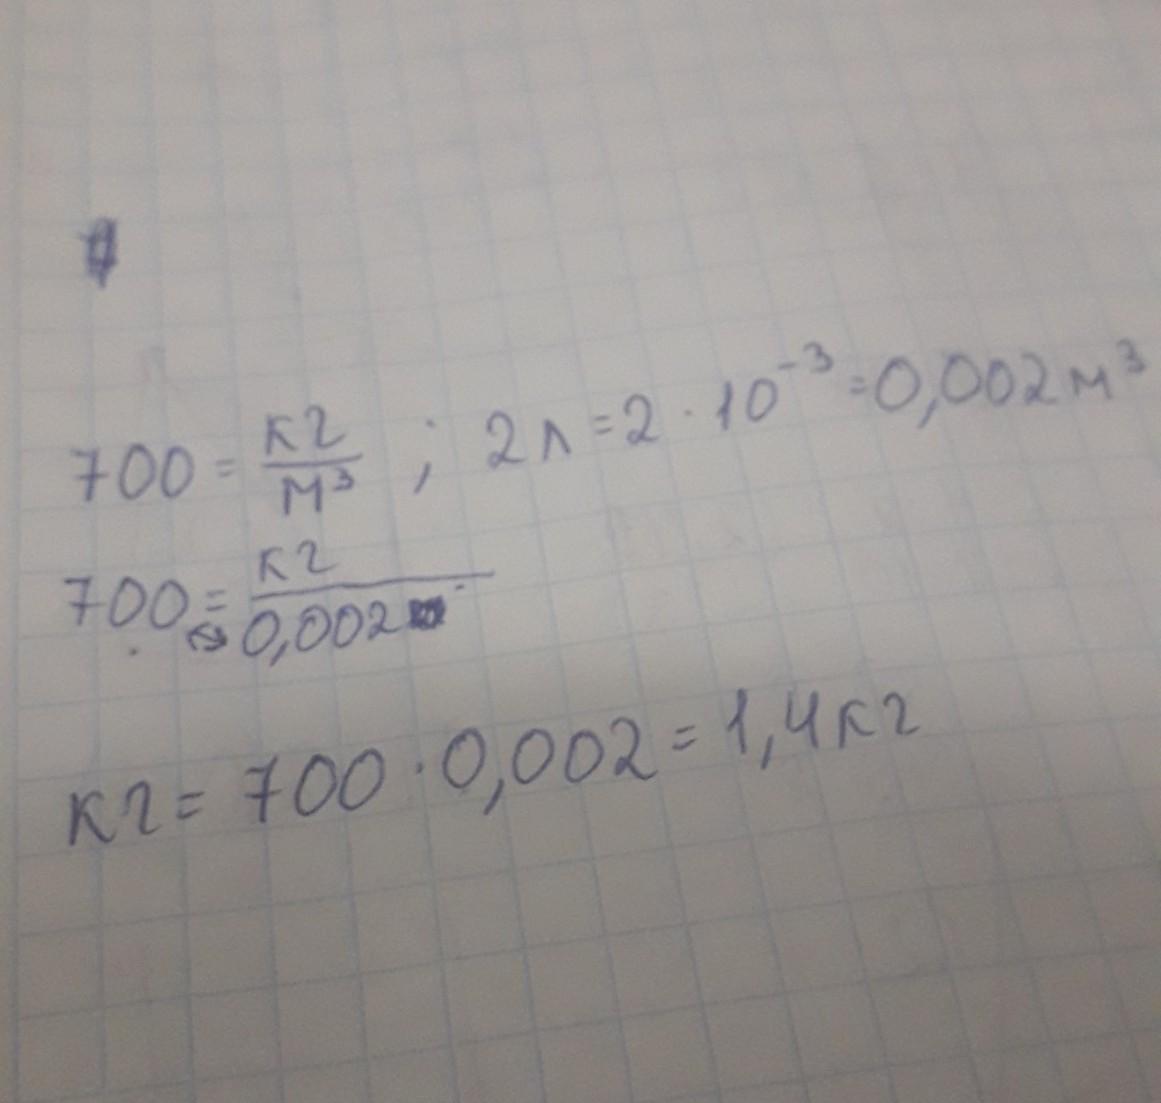 700 = кг/м³ ; 2л = 2 · 10⁻³ = 0,002м³
700 = кг/0,002
кг = 700 · 0,002 = 1,4кг